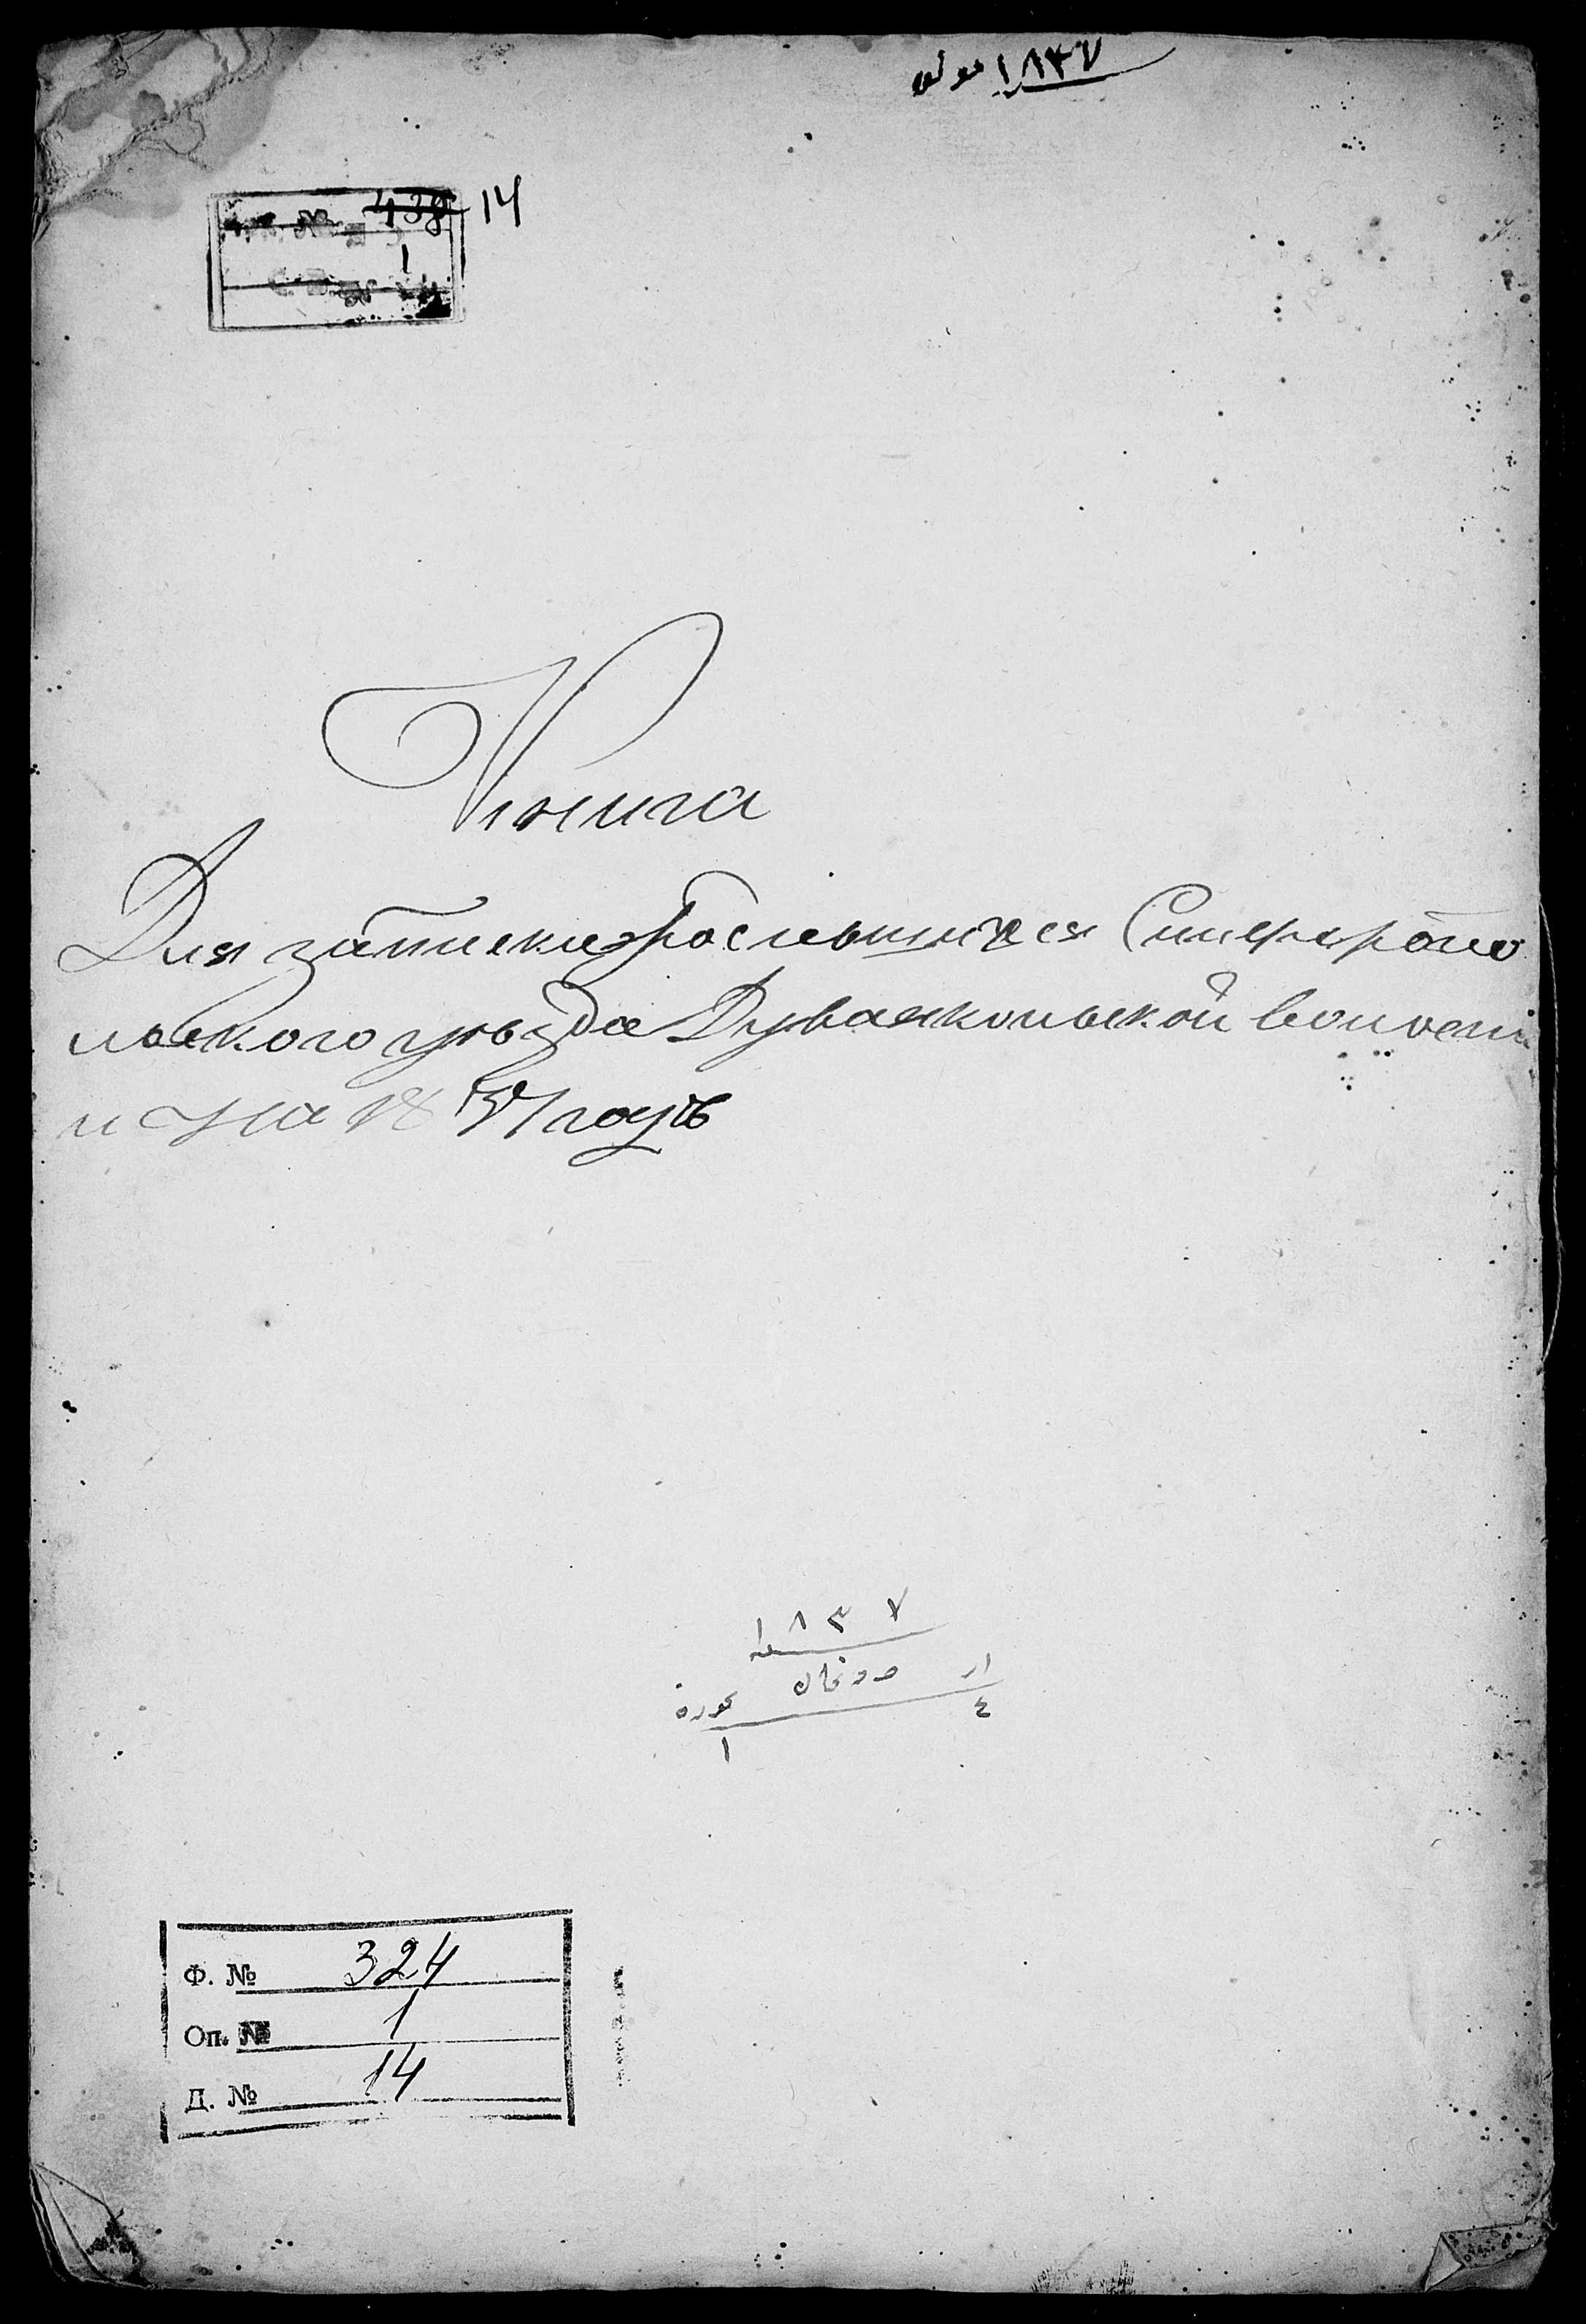 ١٨٣٧
438 14
1
Книга
Для записки родившихся Симферопо
льского уѣзда Дуванкойской волост
и на 1837 годъ
١٨٣٧
٤
١
Ф. № 324
Оп. № 1
Д. № 14